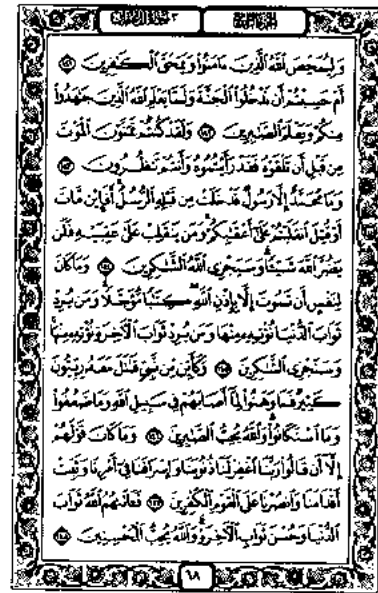 وَلِيُمَحِّصَ ٱللَّهُ ٱلَّذِينَ ءَامَنُوا۟ وَيَمْحَقَ ٱلْكَٰفِرِينَ ١٤١
أَمْ حَسِبْتُمْ أَن تَدْخُلُوا۟ ٱلْجَنَّةَ وَلَمَّا يَعْلَمِ ٱللَّهُ ٱلَّذِينَ جَٰهَدُوا۟
مِنكُمْ وَيَعْلَمَ ٱلصَّٰبِرِينَ ١٤٢ وَلَقَدْ كُنتُمْ تَمَنَّوْنَ ٱلْمَوْتَ
مِن قَبْلِ أَن تَلْقَوْهُ فَقَدْ رَأَيْتُمُوهُ وَأَنتُمْ تَنظُرُونَ ١٤٣
وَمَا مُحَمَّدٌ إِلَّا رَسُولٌ قَدْ خَلَتْ مِن قَبْلِهِ ٱلرُّسُلُ أَفَإِي۟ن مَّاتَ
أَوْ قُتِلَ ٱنقَلَبْتُمْ عَلَىٰٓ أَعْقَٰبِكُمْ وَمَن يَنقَلِبْ عَلَىٰ عَقِبَيْهِ فَلَن
يَضُرَّ ٱللَّهَ شَيْـًٔا وَسَيَجْزِى ٱللَّهُ ٱلشَّٰكِرِينَ ١٤٤ وَمَا كَانَ
لِنَفْسٍ أَن تَمُوتَ إِلَّا بِإِذْنِ ٱللَّهِ كِتَٰبًا مُّؤَجَّلًا وَمَن يُرِدْ
ثَوَابَ ٱلدُّنْيَا نُؤْتِهِۦ مِنْهَا وَمَن يُرِدْ ثَوَابَ ٱلْءَاخِرَةِ نُؤْتِهِۦ مِنْهَا
وَسَنَجْزِى ٱلشَّٰكِرِينَ ١٤٥ وَكَأَيِّن مِّن نَّبِىٍّ قَٰتَلَ مَعَهُۥ رِبِّيُّونَ
كَثِيرٌ فَمَا وَهَنُوا۟ لِمَآ أَصَابَهُمْ فِى سَبِيلِ ٱللَّهِ وَمَا ضَعُفُوا۟
وَمَا ٱسْتَكَانُوا۟ وَٱللَّهُ يُحِبُّ ٱلصَّٰبِرِينَ ١٤٦ وَمَا كَانَ قَوْلَهُمْ
إِلَّآ أَن قَالُوا۟ رَبَّنَا ٱغْفِرْ لَنَا ذُنُوبَنَا وَإِسْرَافَنَا فِىٓ أَمْرِنَا وَثَبِّتْ
أَقْدَامَنَا وَٱنصُرْنَا عَلَى ٱلْقَوْمِ ٱلْكَٰفِرِينَ ١٤٧ فَـَٔاتَىٰهُمُ ٱللَّهُ ثَوَابَ
ٱلدُّنْيَا وَحُسْنَ ثَوَابِ ٱلْءَاخِرَةِ وَٱللَّهُ يُحِبُّ ٱلْمُحْسِنِينَ ١٤٨
٦٨